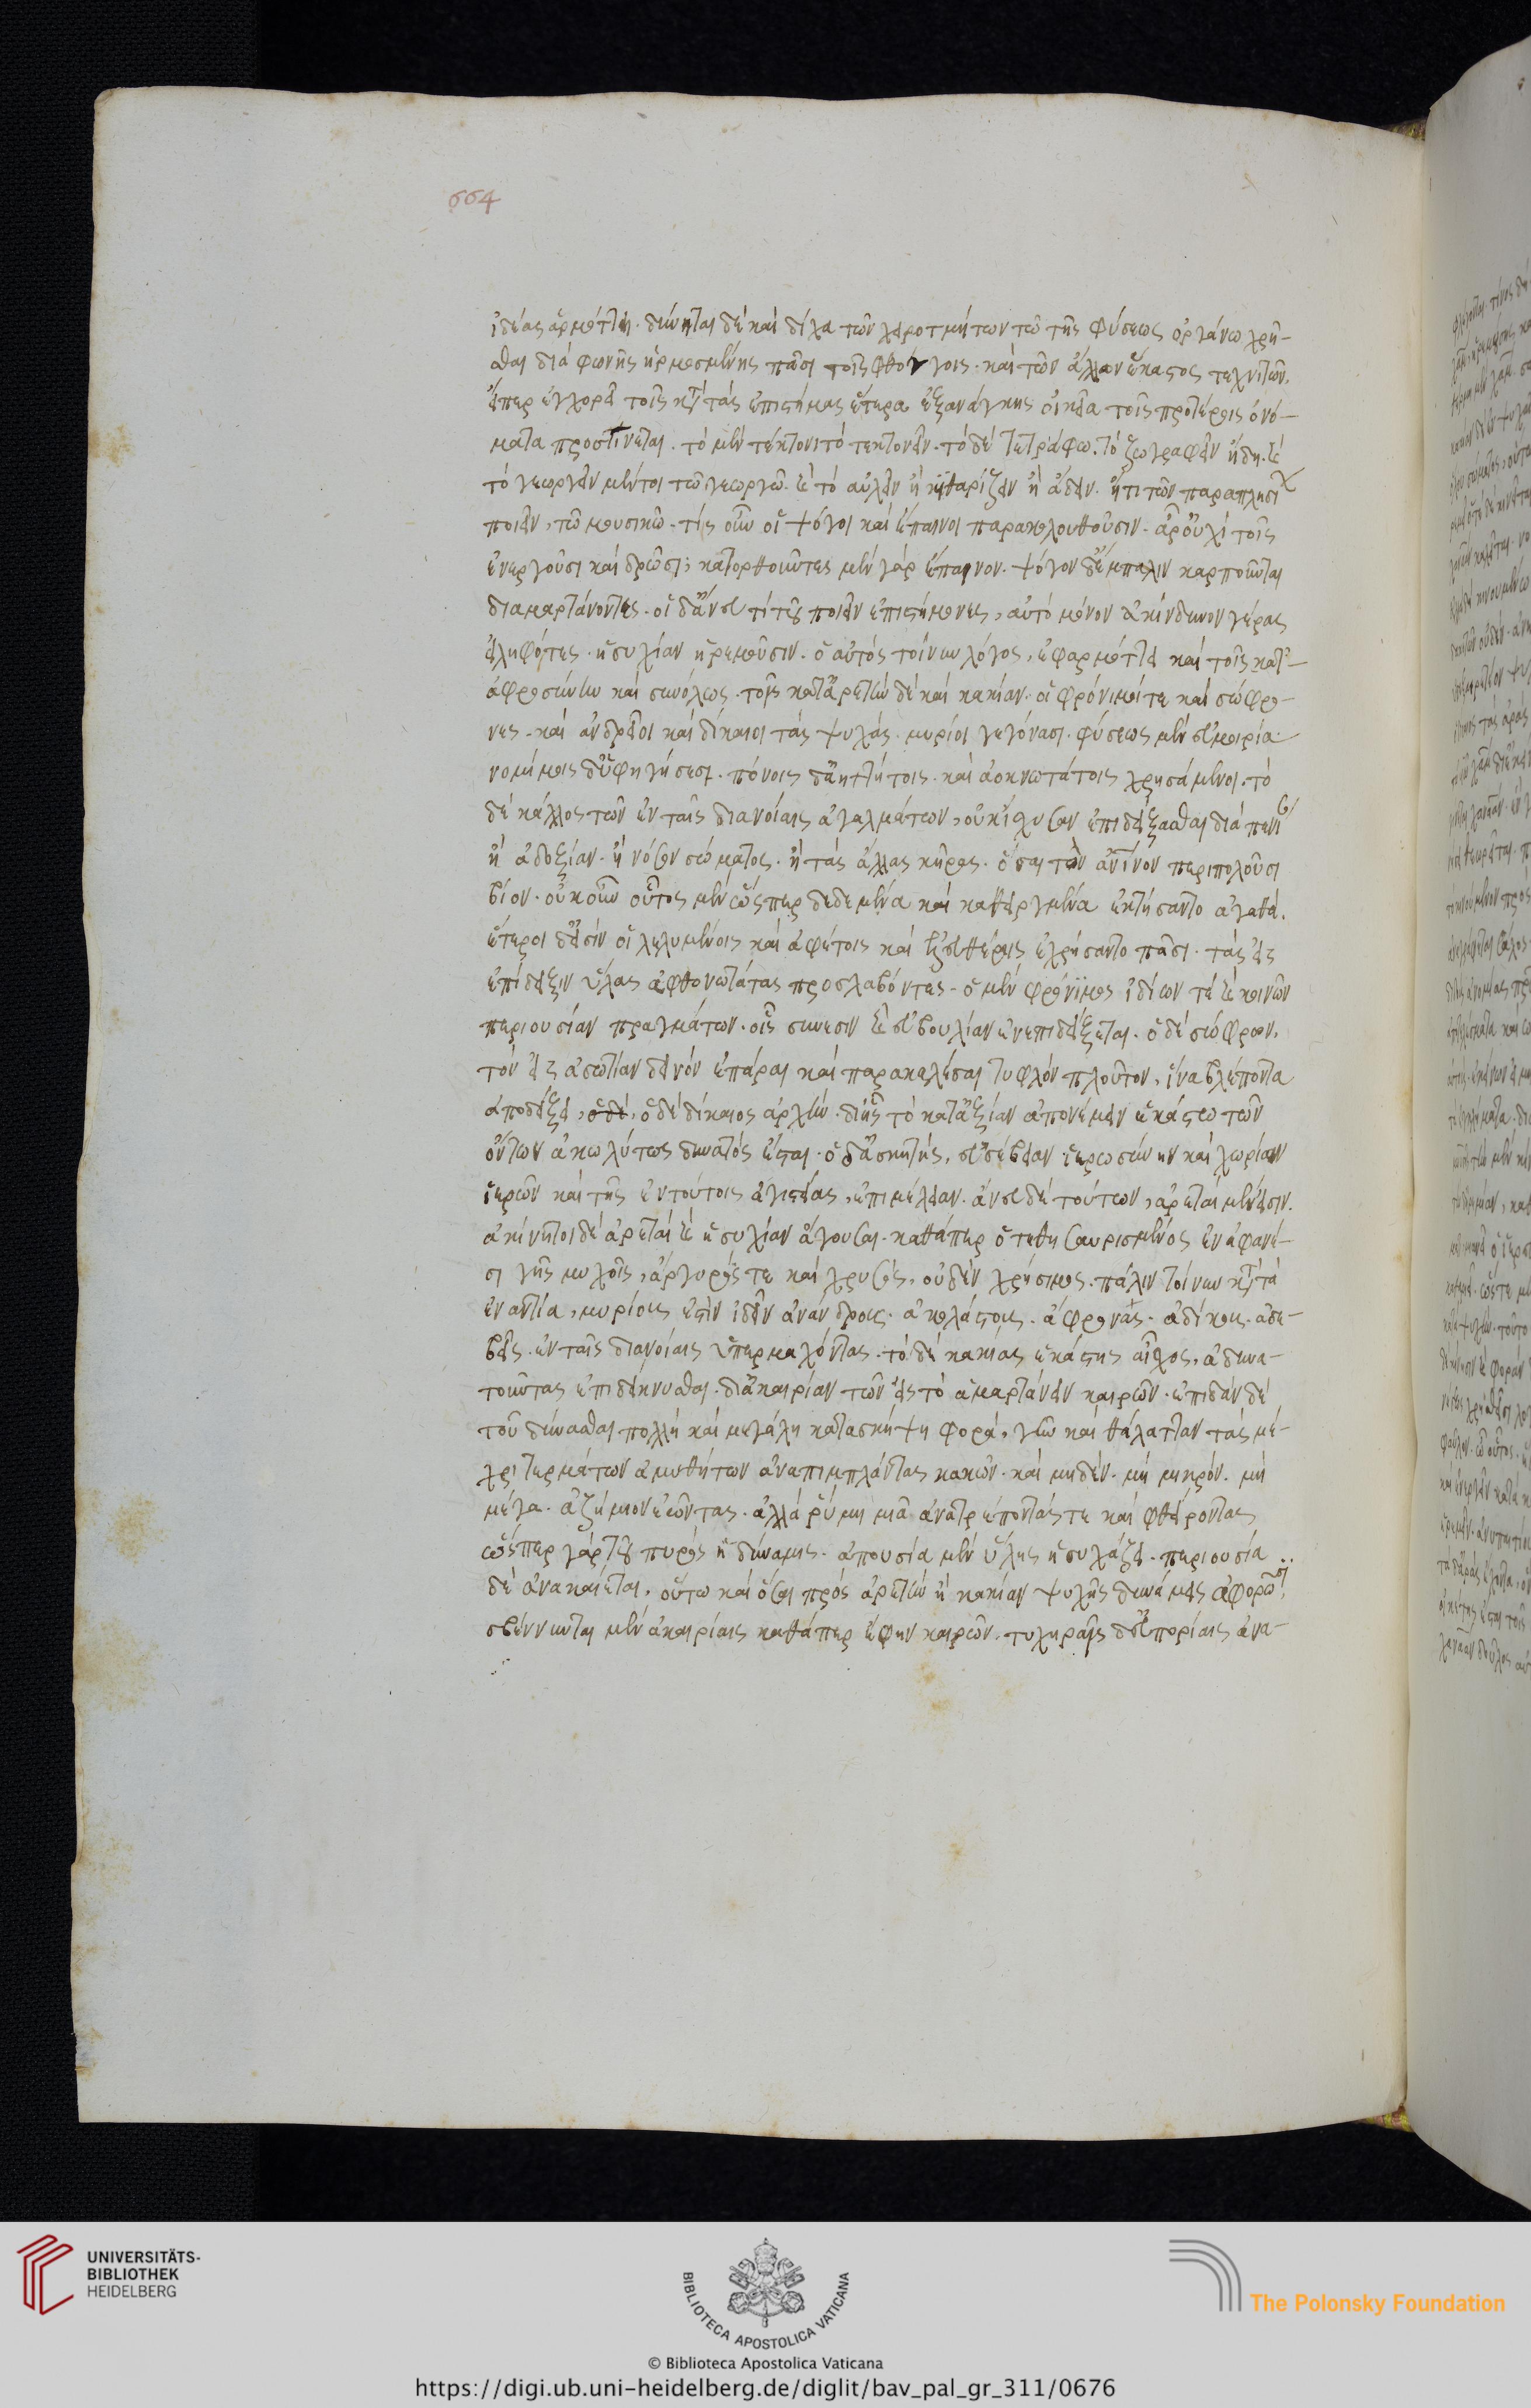 664
ἰδέας ἁρμόττῃ. δύνηται δὲ καὶ δίχα τῶν χειροτμήτων τῶ τῆς φύσεως ὀργάνω χρῆ-
σθαι διὰ φωνῆς ἡρμοσμένης πᾶσι τοῖς φθόγγοις. καὶ τῶν ἄλλων ἕκαστος τεχνιτῶν.
ἅπερ ἐγχορεῖ τοῖς κατὰ τὰς ἐπιστήμας ἕτερα ἐξανάγκης οἰκεῖα τοῖς προτέροις ὀνό-
ματα προστίνεται. τὸ μὲν τέκτονι τὸ τεκτονεῖν. τὸ δὲ ζωγράφω. τὸ ζωγραφεῖν ἤδη. καὶ
τὸ γεωργεῖν μέντοι τῶ γεωργῶ. καὶ τὸ αὐλεῖν ἢ κιθαρίζειν ἢ ἄδειν. ἤ τι τῶν παραπλησί
ποιεῖν, τῶ μουσικῶ. τίσιν οὖν οἱ ψόγοι καὶ ἔπαινοι παρακολουθοῦσιν. ἆρ' οὐχὶ τοῖς
ἐνεργοῦσι καὶ δρῶσι; κατορθοῦντες μὲν γὰρ ἔπαινον. ψόγον δἔμπαλιν καρποῦνται
διαμαρτάνοντες. οἱ δἄνευ τί τοῦ ποιεῖν ἐπιστήμονες, αὐτὸ μόνον ἀκίνδυνον γέρας
εἰληφότες. ἡσυχίαν ἠρεμοῦσιν. ὁ αὐτὸς τοίνυν λόγος, ἐφαρμόττει καὶ τοῖς κατ'-
ἀφροσύνην καὶ συνόλως. τοῖς κατἀρετὴν δὲ καὶ κακίαν. οἱ φρόνιμοί τε καὶ σώφρο-
νες. καὶ ἀνδρεῖοι καὶ δίκαιοι τὰς ψυχάς. μυρίοι γεγόνασι. φύσεως μὲν εὐμοιρία
νομίμοις δ'ὑφηγήσεσι. πόνοις δἀηττήτοις. καὶ ἀοκνωτάτοις χρησάμενοι. τὸ
δὲ κάλλος τῶν ἐν ταῖς διανοίαις ἀγαλμάτων, οὐκ ἴσχυσαν ἐπιδείξασθαι διὰ πενί
ἢ ἀδοξίαν. ἢ νόσον σώματος. ἢ τὰς ἄλλας κῆρας. ὅσαι τὸν ἀνθρώπινον περιπολοῦσι
βίον. οὐκοῦν οὗτος μὲν ὥσπερ δεδεμένα καὶ καθειργμένα ἐκτήσαντο ἀγαθά.
ἕτεροι δεἰσὶν οἳ λελυμένοις καὶ ἀφέτοις καὶ ἐλευθέροις ἐχρήσαντο πᾶσι. τὰς εἰς
ἐπίδειξιν ὕλας ἀφθονωτάτας προσλαβόντες. ὁ μὲν φρόνιμος ἰδίων τὲ καὶ κοινῶν
περιουσίαν πραγμάτων. οἷς σύνεσιν καὶ εὐβουλίαν ἐνεπιδείξεται. ὁ δὲ σώφρων.
τὸν εἰς ἀσωτίαν δεινὸν ἐπᾶραι καὶ παρακαλέσαι τυφλὸν πλοῦτον. ἵνα βλέποντα
ἀποδείξει, ὁ δὲ, ὁ δὲ δίκαιος ἀρχὴν. δι' ἧς τὸ κατἀξίαν ἀπονέμειν ἑκάστω τῶν
ὄντων ἀκωλύτως δυνατὸς ἔσται. ὁ δἀσκητὴς, εὐσέβειαν. ἱερωσύνην καὶ χωρίων
ἱερῶν καὶ τῆς ἐν τούτοις ἁγιστείας, ἐπιμέλειαν. ἄνευ δὲ τούτων, ἀρεταὶ μὲν εἰσιν.
ἀκίνητοι δὲ ἀρεταὶ καὶ ἡσυχίαν ἄγουσαι. καθάπερ ὁ τεθησαυρισμένος ἐν ἀφανέ-
σι γῆς μυχοῖς, ἄργυρός τε καὶ χρυσὸς, οὐδὲν χρήσιμος. πάλιν τοίνυν κατὰ τὰ
ἐναντία, μυρίους ἐστὶν ἰδεῖν ἀνάνδρους. ἀκολάστους. ἄφρονας. ἀδίκους. ἀσε-
βεῖς. ἐν ταῖς διανοίαις ὑπερμαχόντας. τὸ δὲ κακίας ἑκάστης αἶσχος, ἀδυνα-
τοῦντας ἐπιδείκνυσθαι. διἀκαιρίαν τῶν εἰς τὸ ἁμαρτάνειν καιρῶν. ἐπειδὰν δὲ
τοῦ δύνασθαι πολλὴ καὶ μεγάλη κατασκήψη φορὰ, γῆν καὶ θάλατταν τὰς μέ-
χρι τερμάτων ἀμυθήτων ἀναπιμπλάντας κακῶν. καὶ μηδὲν. μὴ μικρόν. μὴ
μέγα. ἀζήμιον ἐῶντας. ἀλλὰ ῥύμη μιᾶ ἀνατρέποντάς τε καὶ φθείροντας
ὥσπερ γὰρ τοῦ πυρὸς ἡ δύναμις. ἀπουσία μὲν ὕλης ἡσυχάζει. περιουσία
δὲ ἀνακαίεται. οὕτω καὶ ὅσαι πρὸς ἀρετὴν ἢ κακίαν ψυχῆς δυνάμεις ἀφορῶσι,
σβέννυνται μὲν ἀκαιρίαις καθάπερ ἔφην καιρῶν. τυχηραῖς δ'εὐπορίαις ἀνα-
UNIVERSITÄTS-
BIBLIOTHEK
HEIDELBERG
BIBLIOTECA APOSTOLICA VATICANA
The Polonsky Foundation
© Biblioteca Apostolica Vaticana
https://digi.ub.uni-heidelberg.de/diglit/bav_pal_gr_311/0676